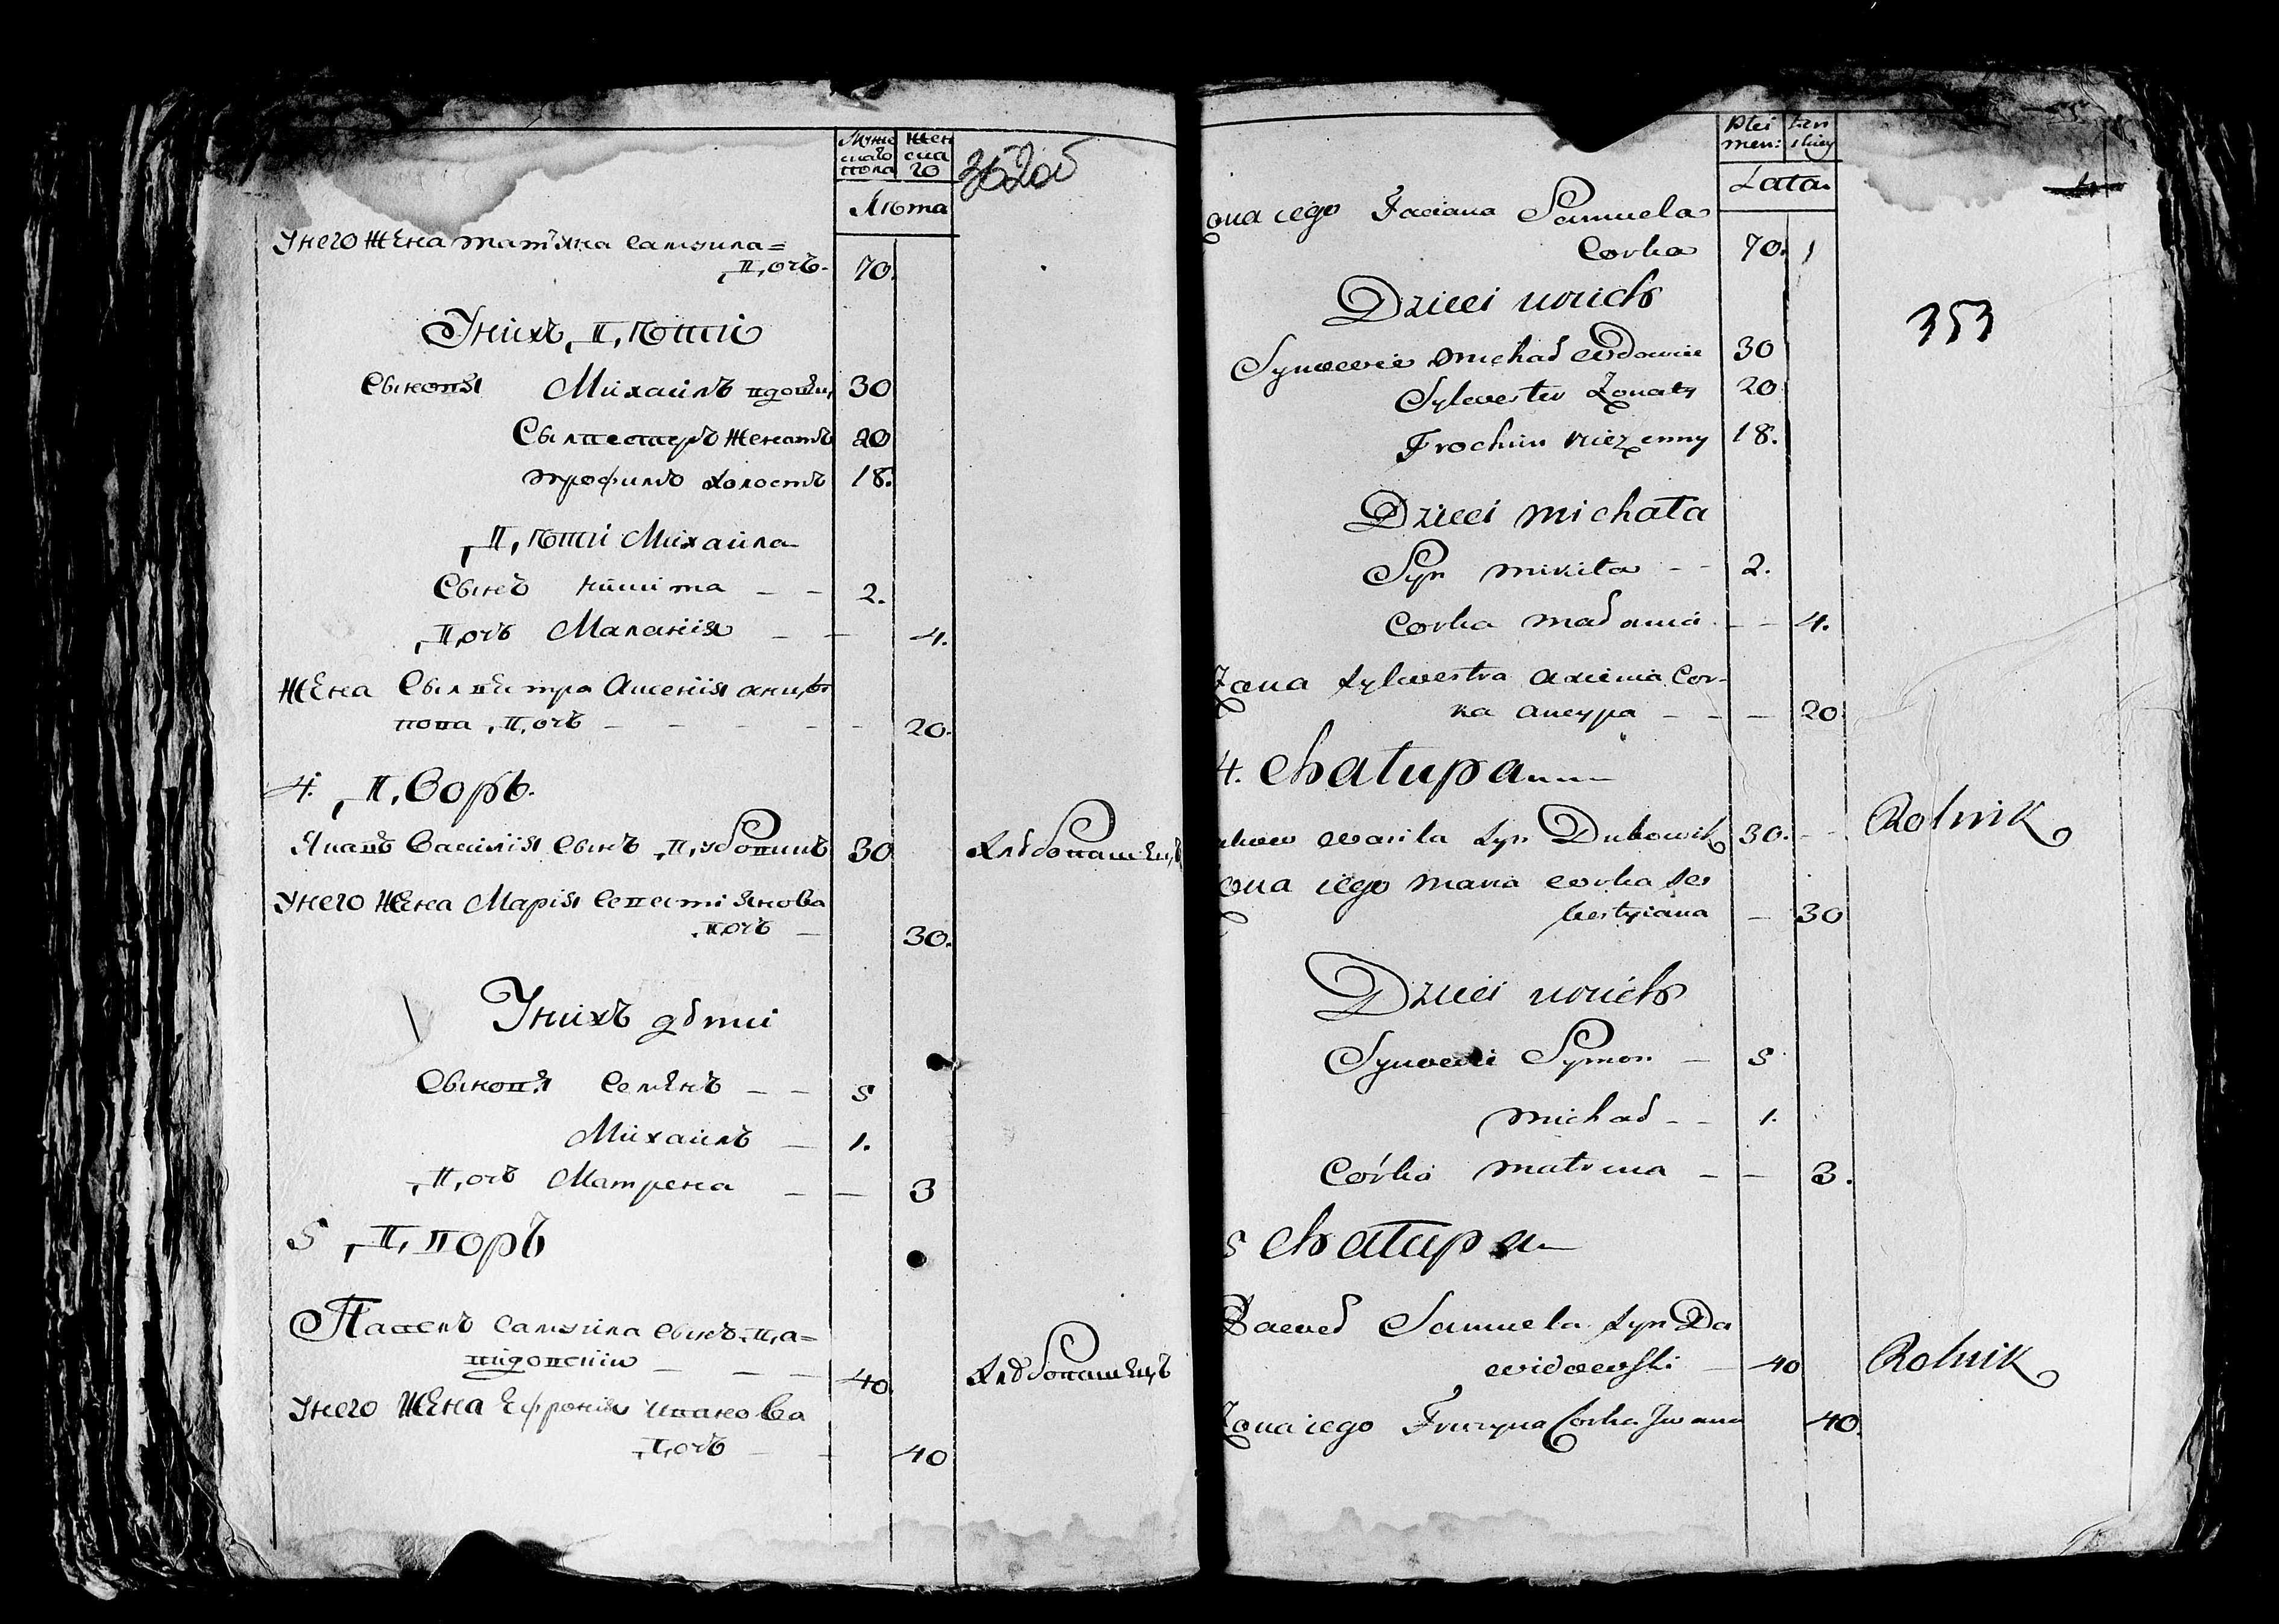 Муже
скаго
пола
Жен
ска
го
Лѣта
352об
Унего жена татьяна самуила=
дочь. 70.
Унихъ дѣтіи
Сыновья Михаилъ вдовы, 30
Сылвестеръ женатъ 20
трофимъ холостъ 18.
дѣтіи Михаила
Сынъ никита - - 2.
дочь Маланія - - 4.
Жена Сылвестра Аксенія
дочь - - - - - 20.
4. дворъ.
Якавъ Василія Сынъ дубовикъ 30 Хлѣбопашецъ
Унего жена Марія Севастіянова
дочь - 30.
Унихъ дѣтіи
Сыновья Семѣнъ - - 5
Михаилъ - 1.
дочь Матрена - - 3
5 дворъ
Павелъ Самуила Сынъ да=
видовскіи - - - 40. Хлѣбопашецъ
Унего жена Ефронія Иванова
дочь - - 40
Płci
men:
żen
skiey
Lata.
353
ona iego Taciana Samuela
Corka 70. 1
Dzieci uuich
Synowie Michał wdowiec 30
Sylwester Żonaty 20
Trochim niezenny 18.
Dzieci Michała
Syn Mikita - - 2.
Corka Małania - - 4.
Żona Sylwestra Axienia Cor-
ka - - - 20
4. Chałupa
Wasila Syn Dubowik 30. - - Rolnik
ona iego Maria corka Se
bestyiana - 30
Dzieci uuich
Synowie Symon - 5
Michał - - 1.
Córka Matrena - - 3.
5 Chałupa
Paweł Samuela Syn Da
widowski - 40 Rolnik
Żona iego Fruzyna Corka Jwana 40.